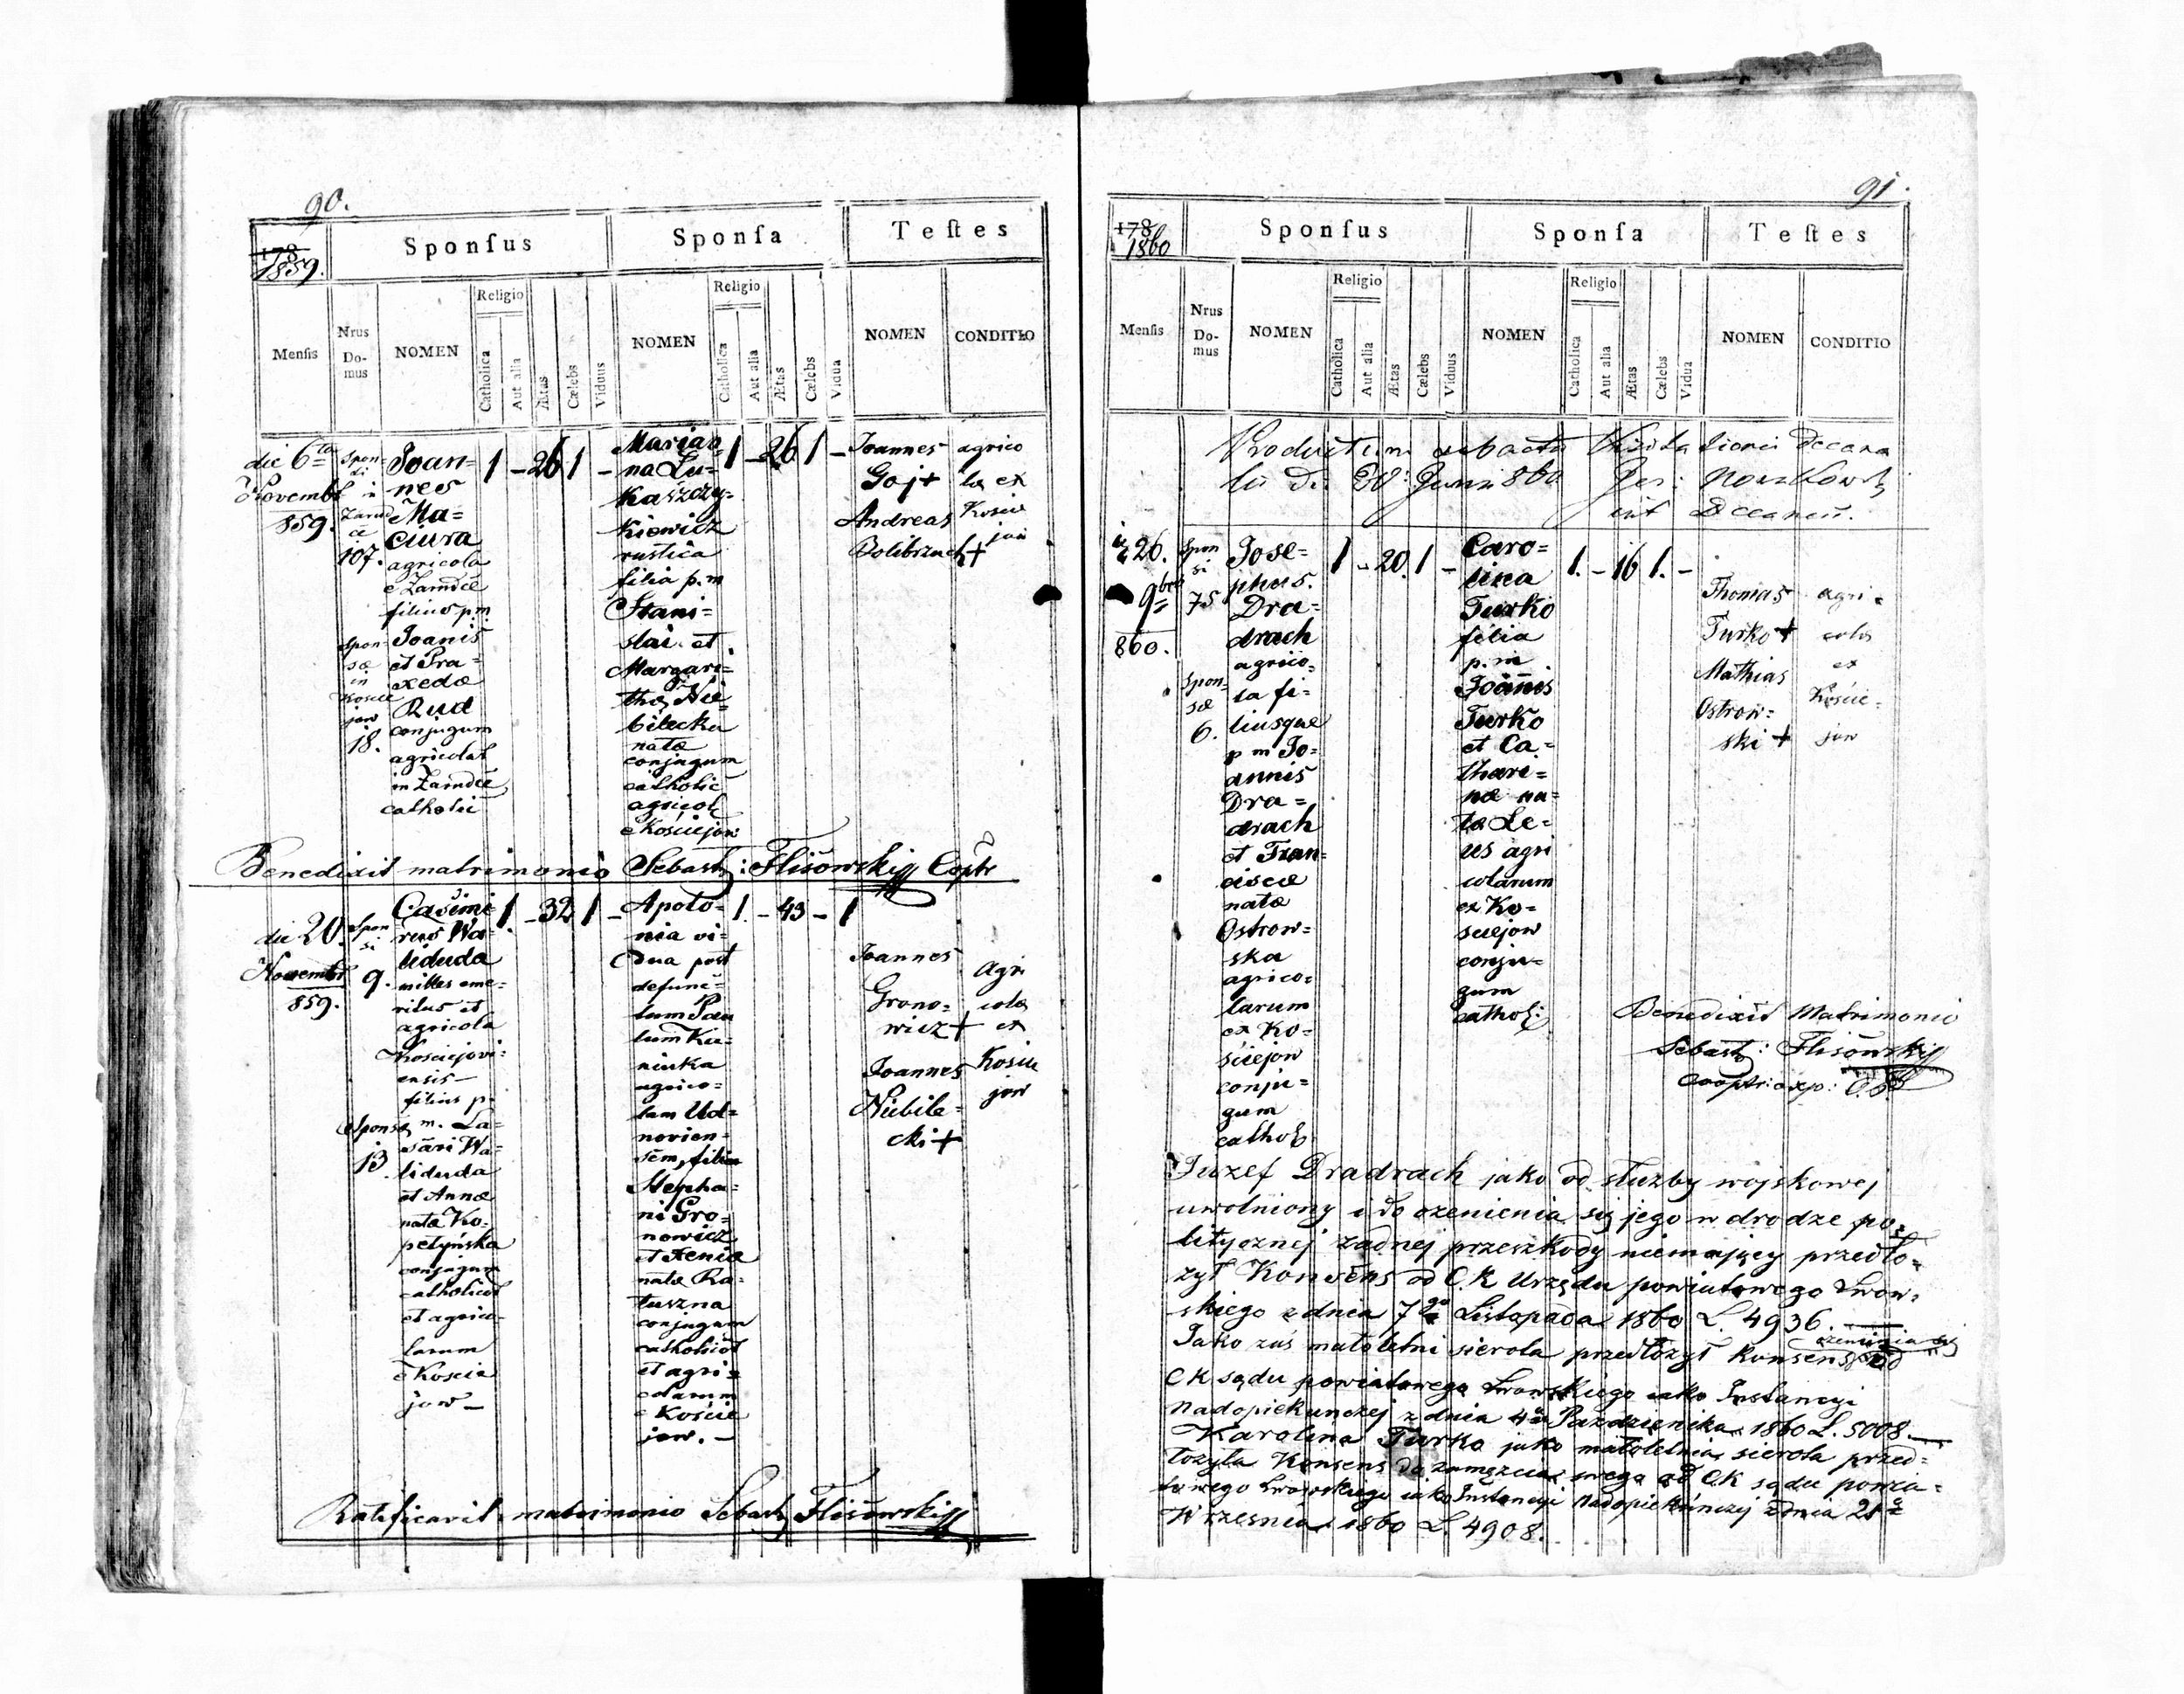 90.
1859.
Sponſus
Sponſa
Teſtes
Menſis
Nrus Domus
NOMEN
Religio
Catholica
Aut alia
Ætas
Cælebs
Viduus
NOMEN
Religio
Catholica
Aut alia
Ætas
Cælebs
Vidua
NOMEN
CONDITIO
die 6ta
Novembr
859.
Spon-
si
in
107.
Spon-
sæ
in
Koście
jow
18.
Joan=
nes
Ma=
ciura
agricola
filius p.m
Joanis
et Pra=
xedæ
Rud
conjugum
agricolar
catholic
1 - 26 1 -
Marian
na Łu=
kaszczy=
kiewicz
rustica
filia p.m
Stani=
slai et
Margari=
thæ Nie
bilecka
nata
conjugum
catholic
agricol
e Kościejow
1 - 26 1 -
Joannes
Goj +
Andreas
agrico
la ex
Koście
jow
Benedixit matrimonio Sebast: Flisowski Coptr
die 20
Novembr
859.
Spon
si
9.
Sponsæ
13
Casimi=
rus Wa=
liduda
miles eme=
ritus et
agricola
Kosciejovi=
ensis
filius p.
m. La=
sari Wa=
liduda
et Annæ
nata Ko=
petyńska
conjugum
catholicor
et agrico=
larum
e Koscie
jow -
1 - 32 1 -
Apolo=
nia vi=
dua post
defunc=
tum Pau
lum Ku=
niuka
agrico=
lam Ud=
novien=
sem, filia
Stepha=
ni Gro=
nowicz
et Xenia
nata Ra=
tuszna
conjugum
catholicor
et agri=
colarum
e Koście
jow. -
1 - 43 - 1
Joannes
Grono=
wicz +
Joannes
Niebile=
cki +
agri
cola
ex
Koście
jow
Ratificavit matrimonio Sebast Flisowski
91.
1860
Sponſus
Sponſa
Teſtes
Menſis
Nrus Domus
NOMEN
Religio
Catholica
Aut alia
Ætas
Cælebs
Viduus
NOMEN
Religio
Catholica
Aut alia
Ætas
Cælebs
Vidua
NOMEN
CONDITIO
Productum sub actu Visitationis Decana
Junii 860
26.
9bris
860.
Spon
si
75
Spon-
sæ
6.
Jose=
phus
Dra=
drach
agrico=
la fi=
liusque
p m Jo=
annis
Dra=
drach
et Fran=
ciscæ
nata
Ostrow=
ska
agrico=
larum
ex Ko=
ściejow
conju=
gum
cathol
1 - 20. 1 -
Caro=
lina
Turko
filia
p. m
Joannis
Turko
et Ca=
thari=
næ na=
ta Le=
us agri
colarum
ex Ko=
sciejow
conju=
gum
cathol:
1. - 16 1. -
Thomas
Turko +
Mathias
Ostrow=
ski +
agri=
cola
ex
Koście=
jow
Benedixit Matrimonio
Sebast: Flisowski
Cooptr: exp:
Juzef Dradrach jako od służby wojskowej
uwolniony i do ozenienia się jego w drodze po=
litycznej zadnej przeszkody niemający przedło=
zył Konsens od C.K Urzędu powiatowego Lwow=
skiego z dnia 7go Listopada 1860 L. 4936.
Jako zaś małoletni sierota przedłozył Konsens ozenienia się od
CK sądu powiatowego Lwowskiego jako Instancyi
Nadopiekunczej z dnia 4go Pazdziernika 1860 L. 5008. —
Karolina Turko jako małoletnia sierota przed=
łozyła Konsens do zamęzcia swego od CK sądu powia=
towego Lwowskiego jako Instancyi Nadopiekunczej z dnia 21go
Wrzesnia 1860 L. 4908.